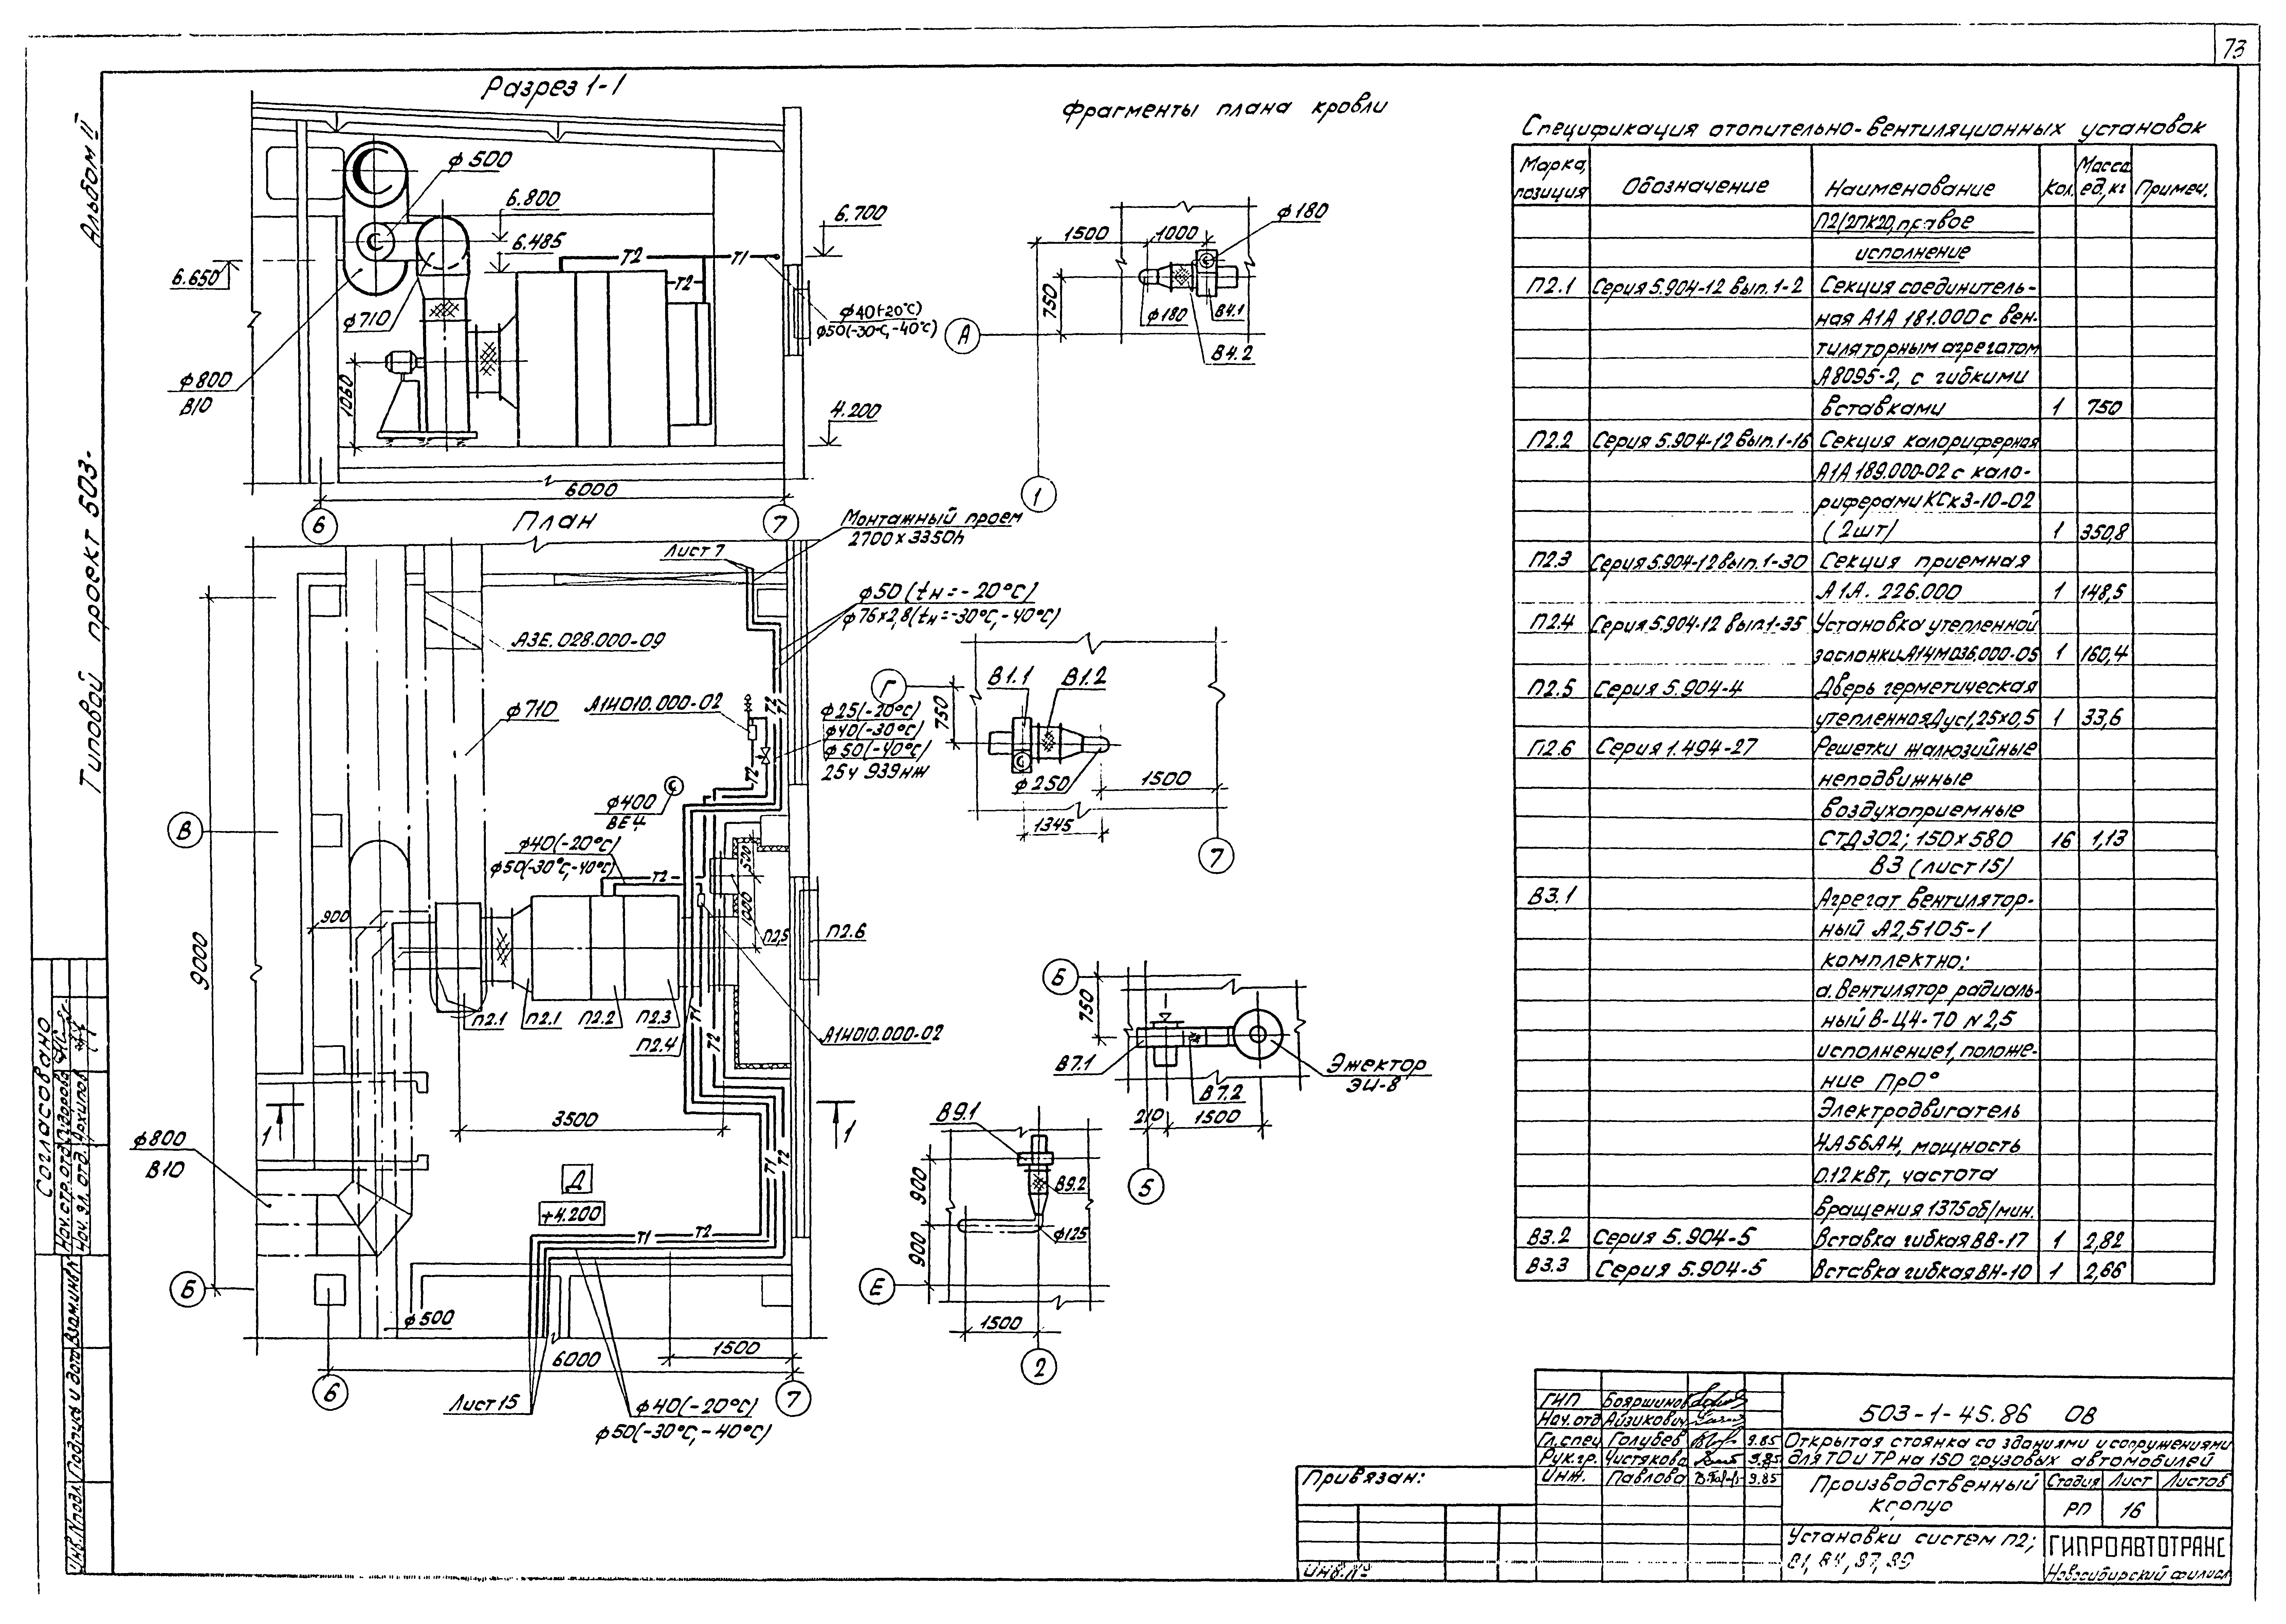 73
Альбом II
Типовой проект 503-
Разрез 1-1
ф500
6.800
6.485
6.700
6.650
Т2
Т1
Т2
ф710
ф40(-20°С)
ф50(-30°С,-40°С)
ф800
В10
1060
4.200
6000
6
7
План
Монтажный проем
2700х3350h
Лист 7
ф50(tн=-20°С)
ф76х2,8(tн=-30°С,-40°С)
А3Е.028.000-09
ф710
А1И010.000-02
Т2
Т1
ф25(-20°С)
ф40(-30°С)
ф50(-40°С)
25ч 939нж
Т2
ф400
ВЕ4
В
ф40(-20°С)
ф50(-30°С,-40°С)
Т2
500
1000
900
9000
П2.5
П2.6
П2.1
П2.1
П2.2
П2.3
П2.4
Т1
Т2
А1И010.000-02
3500
1
1
ф800
В10
Д
+4.200
Т1
Т2
Т1
Т2
Б
ф500
1500
6000
6
7
Лист 15
ф40(-20°С)
ф50(-30°С,-40°С)
Фрагменты плана кровли
1500
1000
ф180
750
ф180
В4.1
В4.2
А
1
Г
В1.1
В1.2
750
ф250
1500
1345
7
Б
750
В7.1
В7.2
Эжектор
ЭИ-8
210
1500
5
В9.1
900
В9.2
900
ф125
Е
1500
2
Спецификация отопительно-вентиляционных установок
Марка, позиция
Обозначение
Наименование
Кол.
Масса ед,кг
Примеч.
П2(2ПК20, правое
исполнение
П2.1 Серия 5.904-12 вып.1-2 Секция соединитель-
ная А1А 181.000 с вен-
тиляторным агрегатом
А8095-2, с гибкими
вставками 1 750
П2.2 Серия 5.904-12 вып.1-16 Секция калориферная
А1А 189.000-02 с кало-
риферами КСк3-10-02
(2шт) 1 350,8
П2.3 Серия 5.904-12 вып.1-30 Секция приемная
А1А. 226.000 1 148,5
П2.4 Серия 5.904-12 вып.1-35 Установка утепленной
заслонки А14М036.000-05 1 160,4
П2.5 Серия 5.904-4 Дверь герметическая
утепленная Дус1,25х0,5 1 33,6
П2.6 Серия 1.494-27 Решетки жалюзийные
неподвижные
воздухоприемные
СТД302; 150х580 16 1,13
В3 (лист 15)
В3.1 Агрегат вентилятор-
ный А2,5105-1
комплектно:
а. Вентилятор радиаль-
ный В-Ц4-70 N2,5
исполнение1, положе-
ние Пр0°
Электродвигатель
4А56А4, мощность
0.12квт, частота
вращения 1375об/мин.
В3.2 Серия 5.904-5 Вставка гибкая ВВ-17 1 2,82
В3.3 Серия 5.904-5 Вставка гибкая ВН-10 1 2,66
Согласовано
Нач.стр.отд. Сидорова
Нач. эл. отд. Архипов
Взам.инв.N
Подпись и дата
Инв.N подл.
Привязан:
Инв.№
ГИП Бояршинов
Нач.отд Айзикович
Гл.спец. Голубев 9.85
Рук.гр. Чистякова 9.85
Инж. Павлова 9.85
503-1-45.86 ОВ
Открытая стоянка со зданиями и сооружениями
для ТО и ТР на 150 грузовых автомобилей
Производственный
корпус
Стадия Лист Листов
РП 16
Установки систем П2;
В1, В4, В7, В9
ГИПРОАВТОТРАНС
Новосибирский филиал